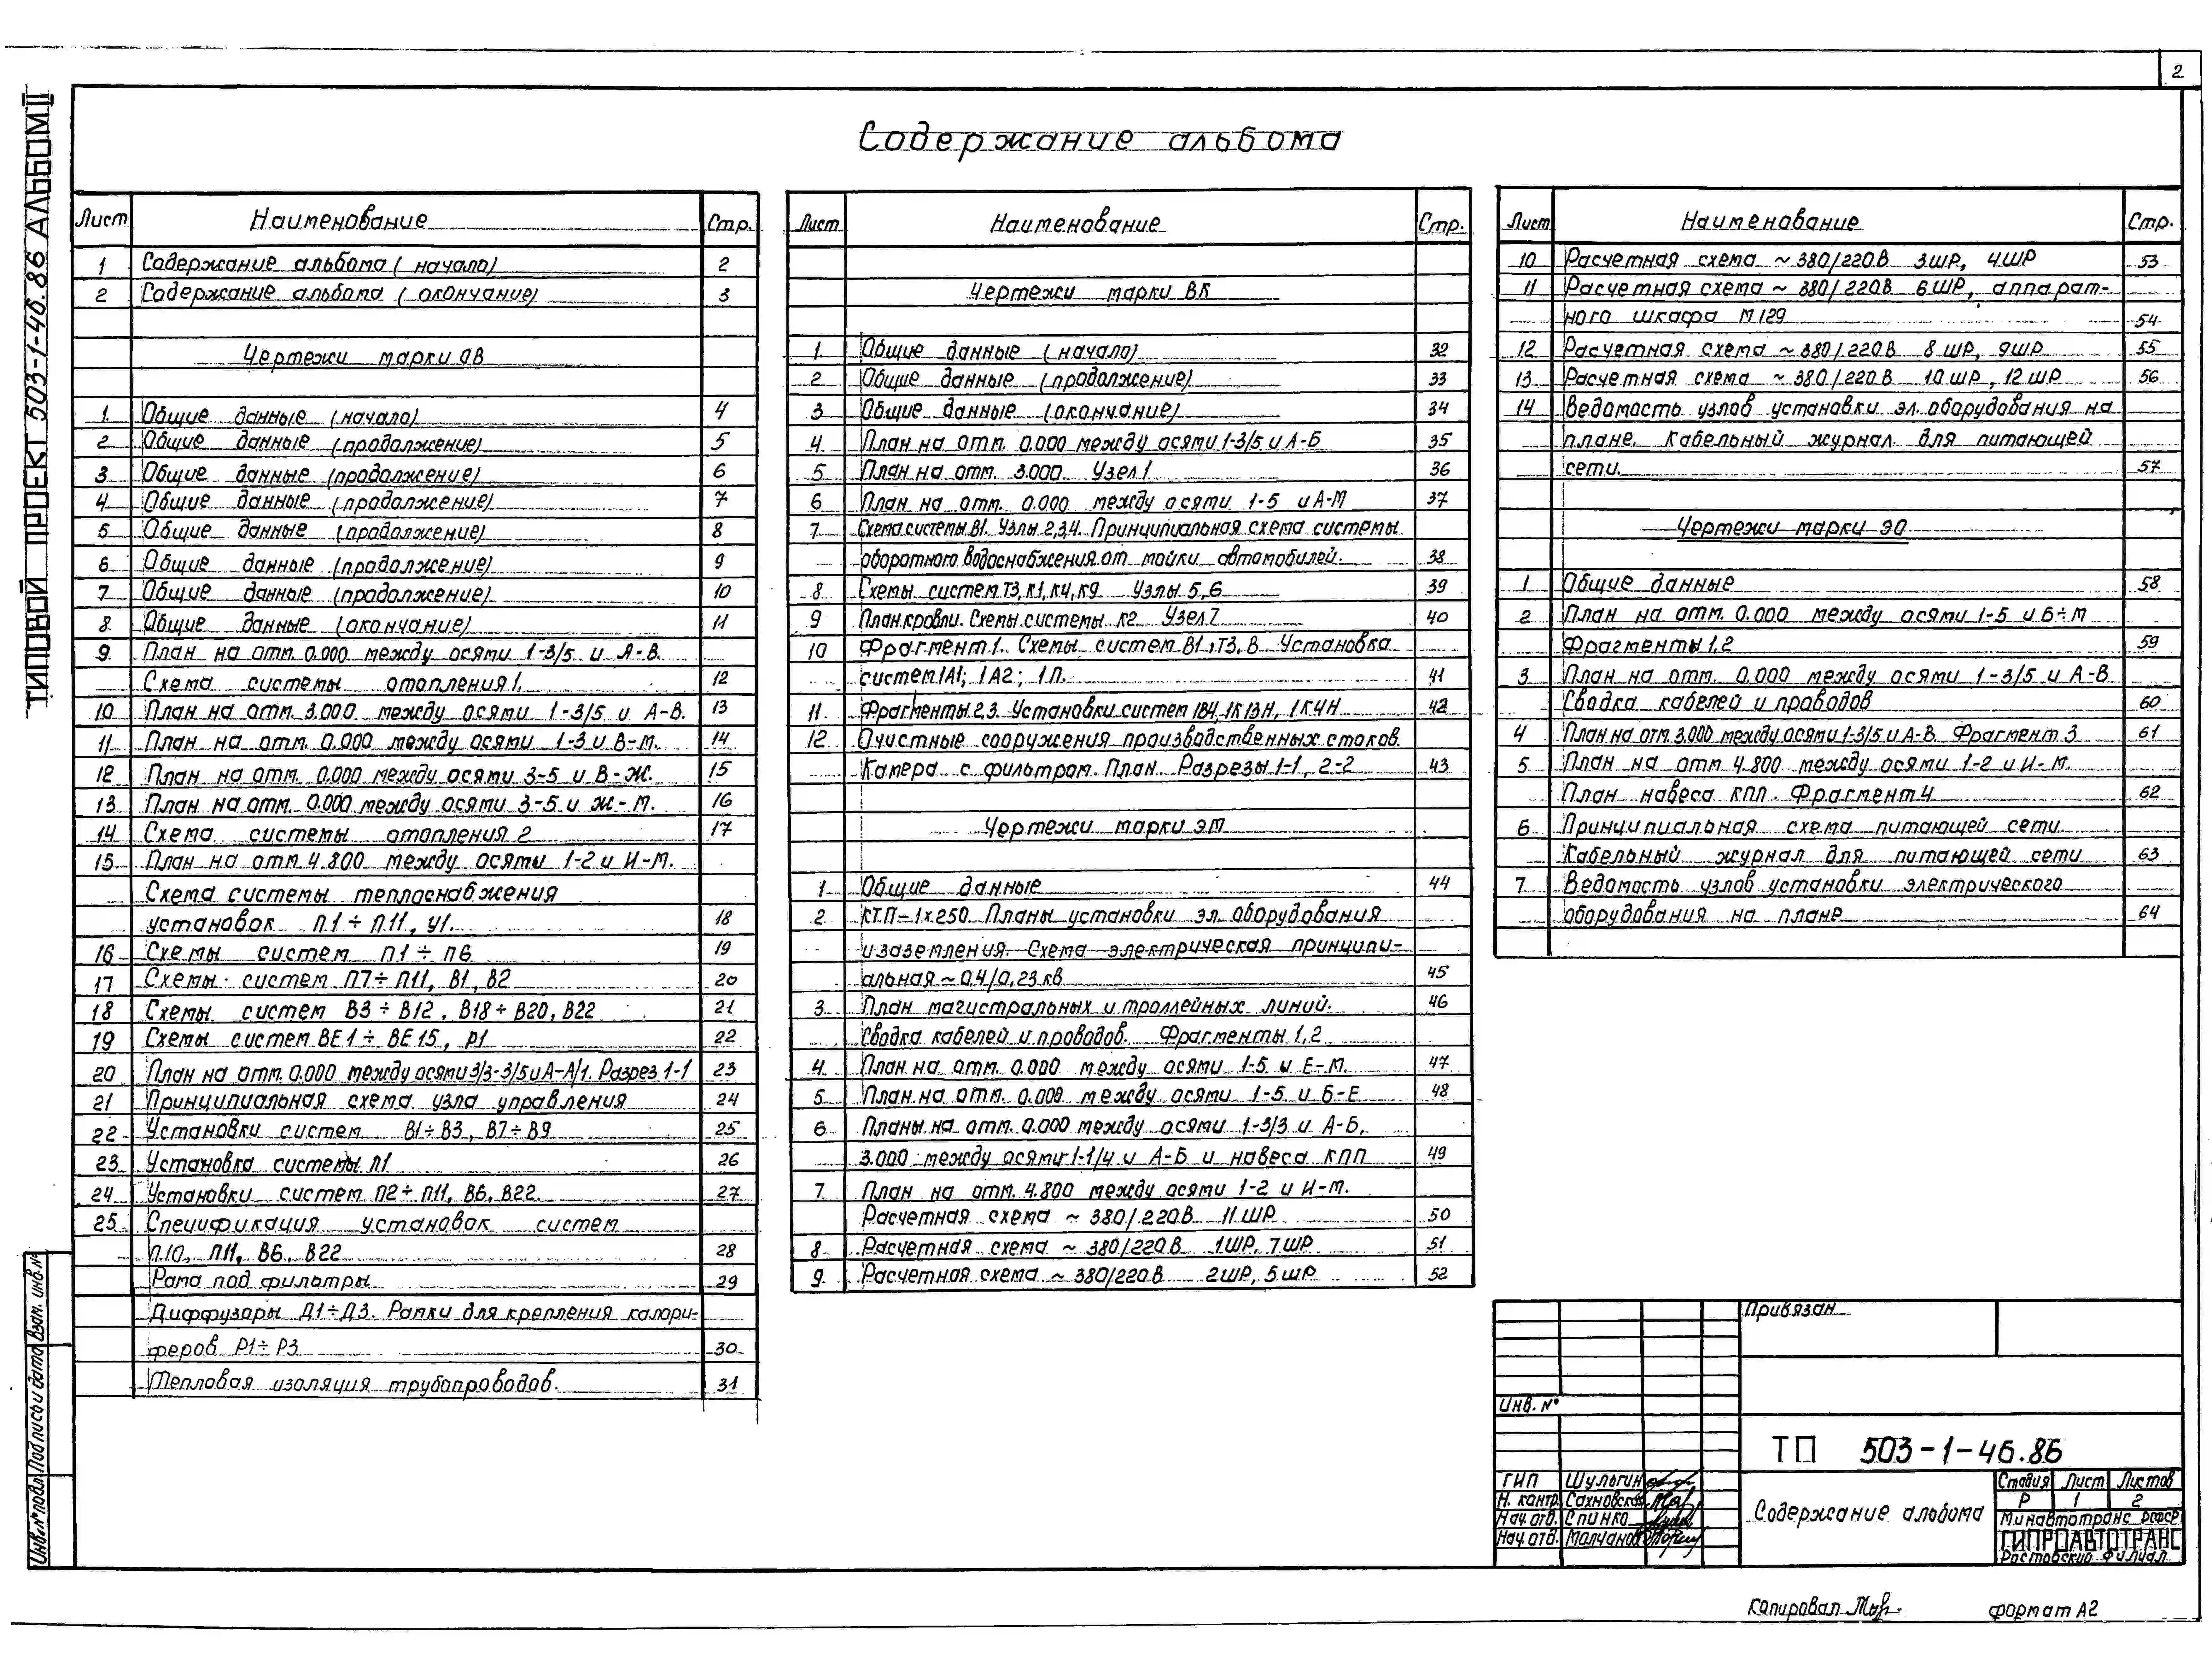 2
ТИПОВОЙ ПРОЕКТ 503-1-46.86 АЛЬБОМ II
Содержание альбома
Лист Наименование Стр.
1 Содержание альбома (начало) 2
2 Содержание альбома (окончание) 3
Чертежи марки ОВ
1 Общие данные (начало) 4
2 Общие данные (продолжение) 5
3 Общие данные (продолжение) 6
4 Общие данные (продолжение) 7
5 Общие данные (продолжение) 8
6 Общие данные (продолжение) 9
7 Общие данные (продолжение) 10
8 Общие данные (окончание) 11
9 План на отм. 0.000 между осями 1-3/5 и А-В.
Схема системы отопления 1. 12
10 План на отм. 3.000 между осями 1-3/5 и А-В. 13
11 План на отм. 0.000 между осями 1-3 и В-М. 14
12 План на отм. 0.000 между осями 3-5 и В-Ж. 15
13 План на отм. 0.000 между осями 3-5 и Ж-М. 16
14 Схема системы отопления 2 17
15 План на отм. 4.800 между осями 1-2 и И-М.
Схема системы теплоснабжения
установок П1÷П11, У1. 18
16 Схемы систем П1÷П6 19
17 Схемы систем П7÷П11, В1, В2 20
18 Схемы систем В3÷В12, В18÷В20, В22 21
19 Схемы систем ВЕ1÷ВЕ15, Р1 22
20 План на отм. 0.000 между осями 3/3-3/5 и А-А/1. Разрез 1-1 23
21 Принципиальная схема узла управления 24
22 Установки систем В1÷В3, В7÷В9 25
23 Установка системы П1 26
24 Установки систем П2÷П11, В6, В22 27
25 Спецификация установок систем
П10, П11, В6, В22 28
Рама под фильтры 29
Диффузоры Д1÷Д3. Рамки для крепления калори-
феров Р1÷Р3 30
Тепловая изоляция трубопроводов. 31
Лист Наименование Стр.
Чертежи марки ВК
1 Общие данные (начало) 32
2 Общие данные (продолжение) 33
3 Общие данные (окончание) 34
4 План на отм. 0.000 между осями 1-3/5 и А-Б 35
5 План на отм. 3.000 Узел 1 36
6 План на отм. 0.000 между осями 1-5 и А-М 37
7 Схема системы В1. Узлы 2,3,4. Принципиальная схема системы
оборотного водоснабжения от мойки автомобилей. 38
8 Схемы систем Т3, К1, К4, К9 Узлы 5,6 39
9 План кровли. Схемы системы К2 Узел 7 40
10 Фрагмент 1. Схемы систем В1, Т3, В Установка
систем 1А1; 1А2; 1П. 41
11 Фрагменты 2,3. Установки систем 1В4, 1К13Н, 1К4Н 42
12 Очистные сооружения производственных стоков.
Камера с фильтром. План. Разрезы 1-1, 2-2 43
Чертежи марки ЭМ
1 Общие данные 44
2 КТП-1х250. Планы установки эл. оборудования
и заземления. Схема электрическая принципи-
альная ~0,4/0,23 кВ 45
3 План магистральных и троллейных линий. 46
Сводка кабелей и проводов. Фрагменты 1,2
4 План на отм. 0.000 между осями 1-5 и Е-М. 47
5 План на отм. 0.000 между осями 1-5 и Б-Е 48
6 Планы на отм. 0.000 между осями 1-3/3 и А-Б,
3.000 между осями 1-1/4 и А-Б и навеса КПП 49
7 План на отм. 4.800 между осями 1-2 и И-М.
Расчетная схема ~380/220В 11ШР 50
8 Расчетная схема ~380/220В 1ШР, 7ШР 51
9 Расчетная схема ~380/220В 2ШР, 5ШР 52
Лист Наименование Стр.
10 Расчетная схема ~380/220В 3ШР, 4ШР 53
11 Расчетная схема ~380/220В 6ШР, аппарат-
ного шкафа М129 54
12 Расчетная схема ~380/220В 8ШР, 9ШР 55
13 Расчетная схема ~380/220В 10ШР, 12ШР 56
14 Ведомость узлов установки эл. оборудования на
плане. Кабельный журнал для питающей
сети. 57
Чертежи марки ЭО
1 Общие данные 58
2 План на отм. 0.000 между осями 1-5 и Б÷М
Фрагменты 1,2 59
3 План на отм. 0.000 между осями 1-3/5 и А-В
Сводка кабелей и проводов 60
4 План на отм. 3.000 между осями 1-3/5 и А-В. Фрагмент 3 61
5 План на отм 4.800 между осями 1-2 и И-М.
План навеса КПП. Фрагмент 4 62
6 Принципиальная схема питающей сети.
Кабельный журнал для питающей сети 63
7 Ведомость узлов установки электрического
оборудования на плане 64
Привязан
Инв. №
ТП 503-1-46.86
ГИП Шульгин
Н. контр. Сахновская
Нач. отд. Спинко
Нач. отд. Молчанов
Содержание альбома
Стадия Лист Листов
Р 1 2
Минавтотранс РСФСР
ГИПРОАВТОТРАНС
Ростовский филиал
Инв. № подл. Подпись и дата Взам. инв. №
Копировал
формат А2